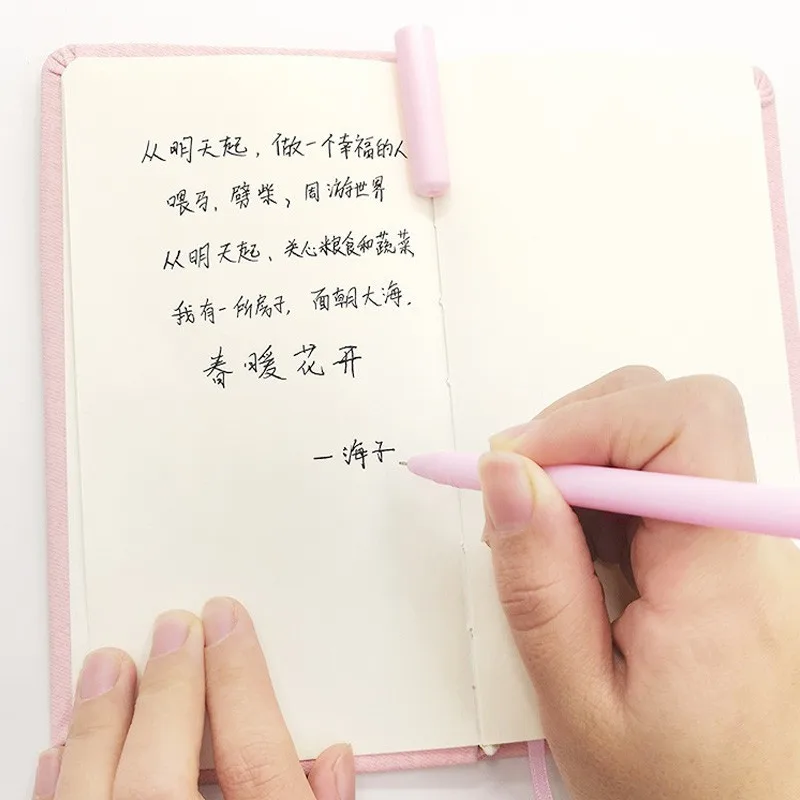 从明天起，做一个幸福的人
喂马，劈柴，周游世界
从明天起，关心粮食和蔬菜
我有一所房子，面朝大海.
春暖花开
—海子